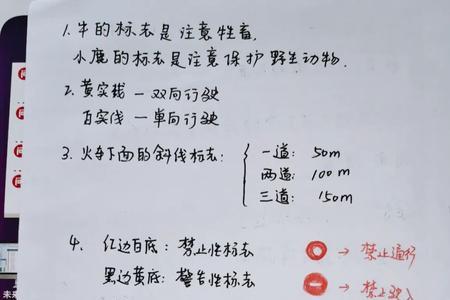 1. 牛的标志是注意牲畜,
小鹿的标志是注意保护野生动物.
2. 黄实线 — 双向行驶
百实线 — 单向行驶
3. 火车下面的斜线标志:
一道: 50m
两道: 100m
三道: 150m
4. 红边百底: 禁止性标志
→ 禁止通行
黑边黄底: 警告性标志
→ 禁止驶入
未来